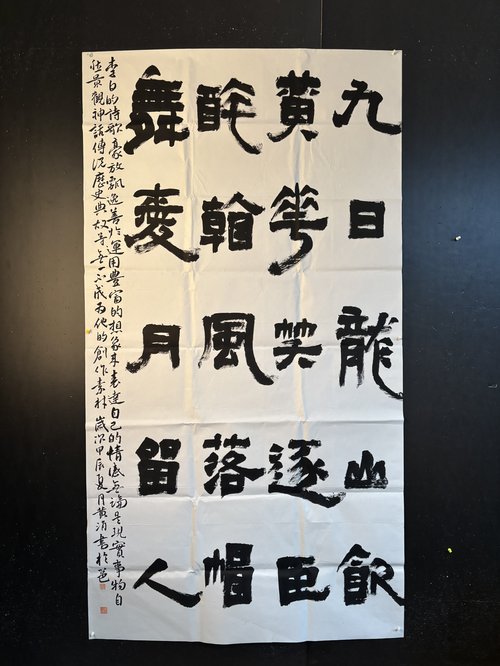 九日龍山飲
黄華笑逐臣
醉看風落帽
舞愛月留人
李白的詩歌豪放飄逸善於運用豐富的想象來表達自己的情感無論是現實事物自
然景觀神話傳說歷史典故等無一不成為他的創作素材歲次甲辰夏月黄書於邕